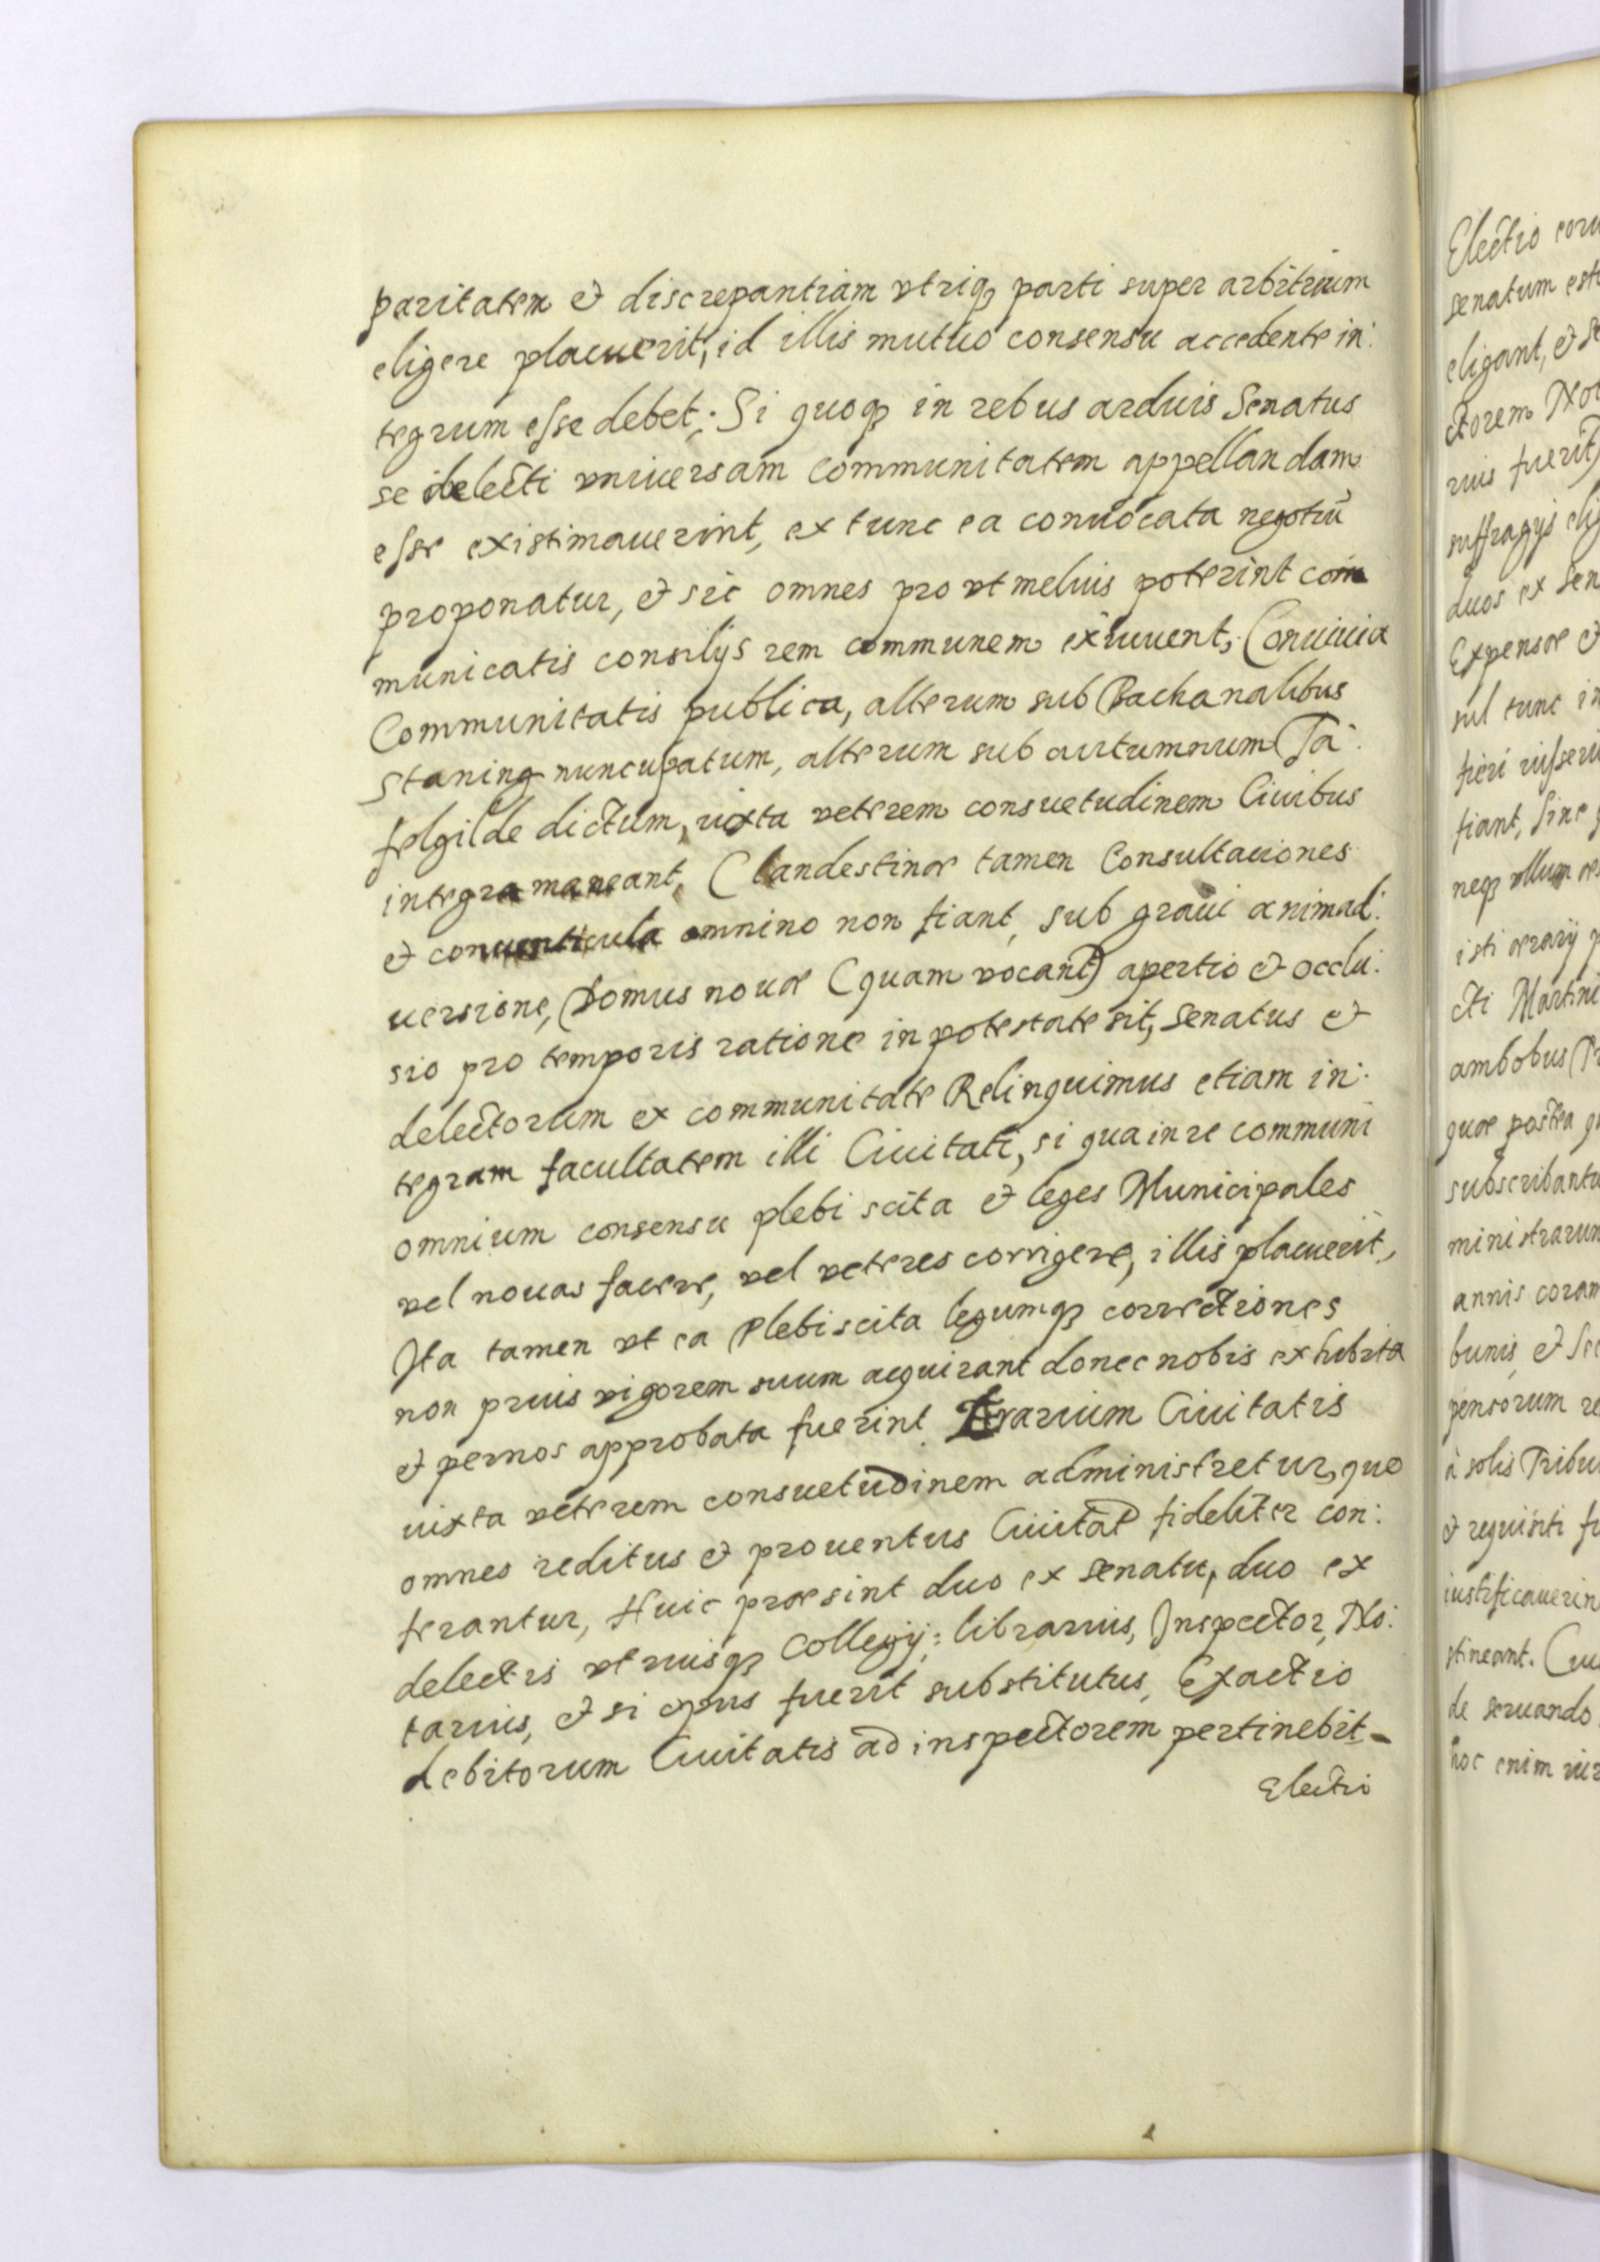 paritatem & discrepantiam vtriq₃ parti super arbitrium
eligere placuerit, id illis mutuo consensu accedente in:
tegrum esse debet; Si quoq₃ in rebus arduis Senatus
se delecti vniuersam communitatem appellandam
esse existimauerint, ex tunc ea conuocata negotiũ
proponatur, & sic omnes pro vt melius poterint com
municatis consilijs rem communem exiuuent, Conuiuia
Communitatis publica, alterum sub Bachanalibus
Staning nuncupatum, alterum sub autumnum Ta:
felgilde dictum, iuxta veterem consuetudinem Ciuibus
integra maneant, Clandestinæ tamen Consultaciones
& conuenticula omnino non fiant, sub graui animad:
uersione, Domus nouæ (quam vocant) apertio & occlu:
sio pro temporis ratione in potestate sit, Senatus &
delectorum ex communitate Relinquimus etiam in:
tegram facultatem illi Ciuitati, si qua in re communi
omnium consensu plebi scita & leges Municipales
vel nouas facere, vel veteres corrigere, illis placuerit,
Ita tamen vt ea Plebiscita legumq₃ correctiones
non prius vigorem suum acquirant donec nobis exhibita
& per nos approbata fuerint Ærarium Ciuitatis
iuxta veterem consuetudinem administretur, quo
omnes reditus & prouentus Ciuitat fideliter con:
ferantur, Huic præsint duo ex Senatu, duo ex
delectis vtriusq₃ Collegij: librarius, Inspector, No:
tarius, & si opus fuerit substitutus, Exactio
debitorum Ciuitatis ad inspectorem pertinebit-
Electio
Electio
senatum
eligant, &
ctorem
rius fuerit
suffragijs
duos ex Sen
Expensæ &
sul tunc in
fieri iusseri
fiant, sine
neq₃ vllum
isti ærarij
cti Martini
ambobus
quæ postea
subscribantu
ministrarun
annis coram
bunis, &
pensorum
à solis Tribu
& requisiti
iustificauerin
stineant.
de seruando
hoc enim